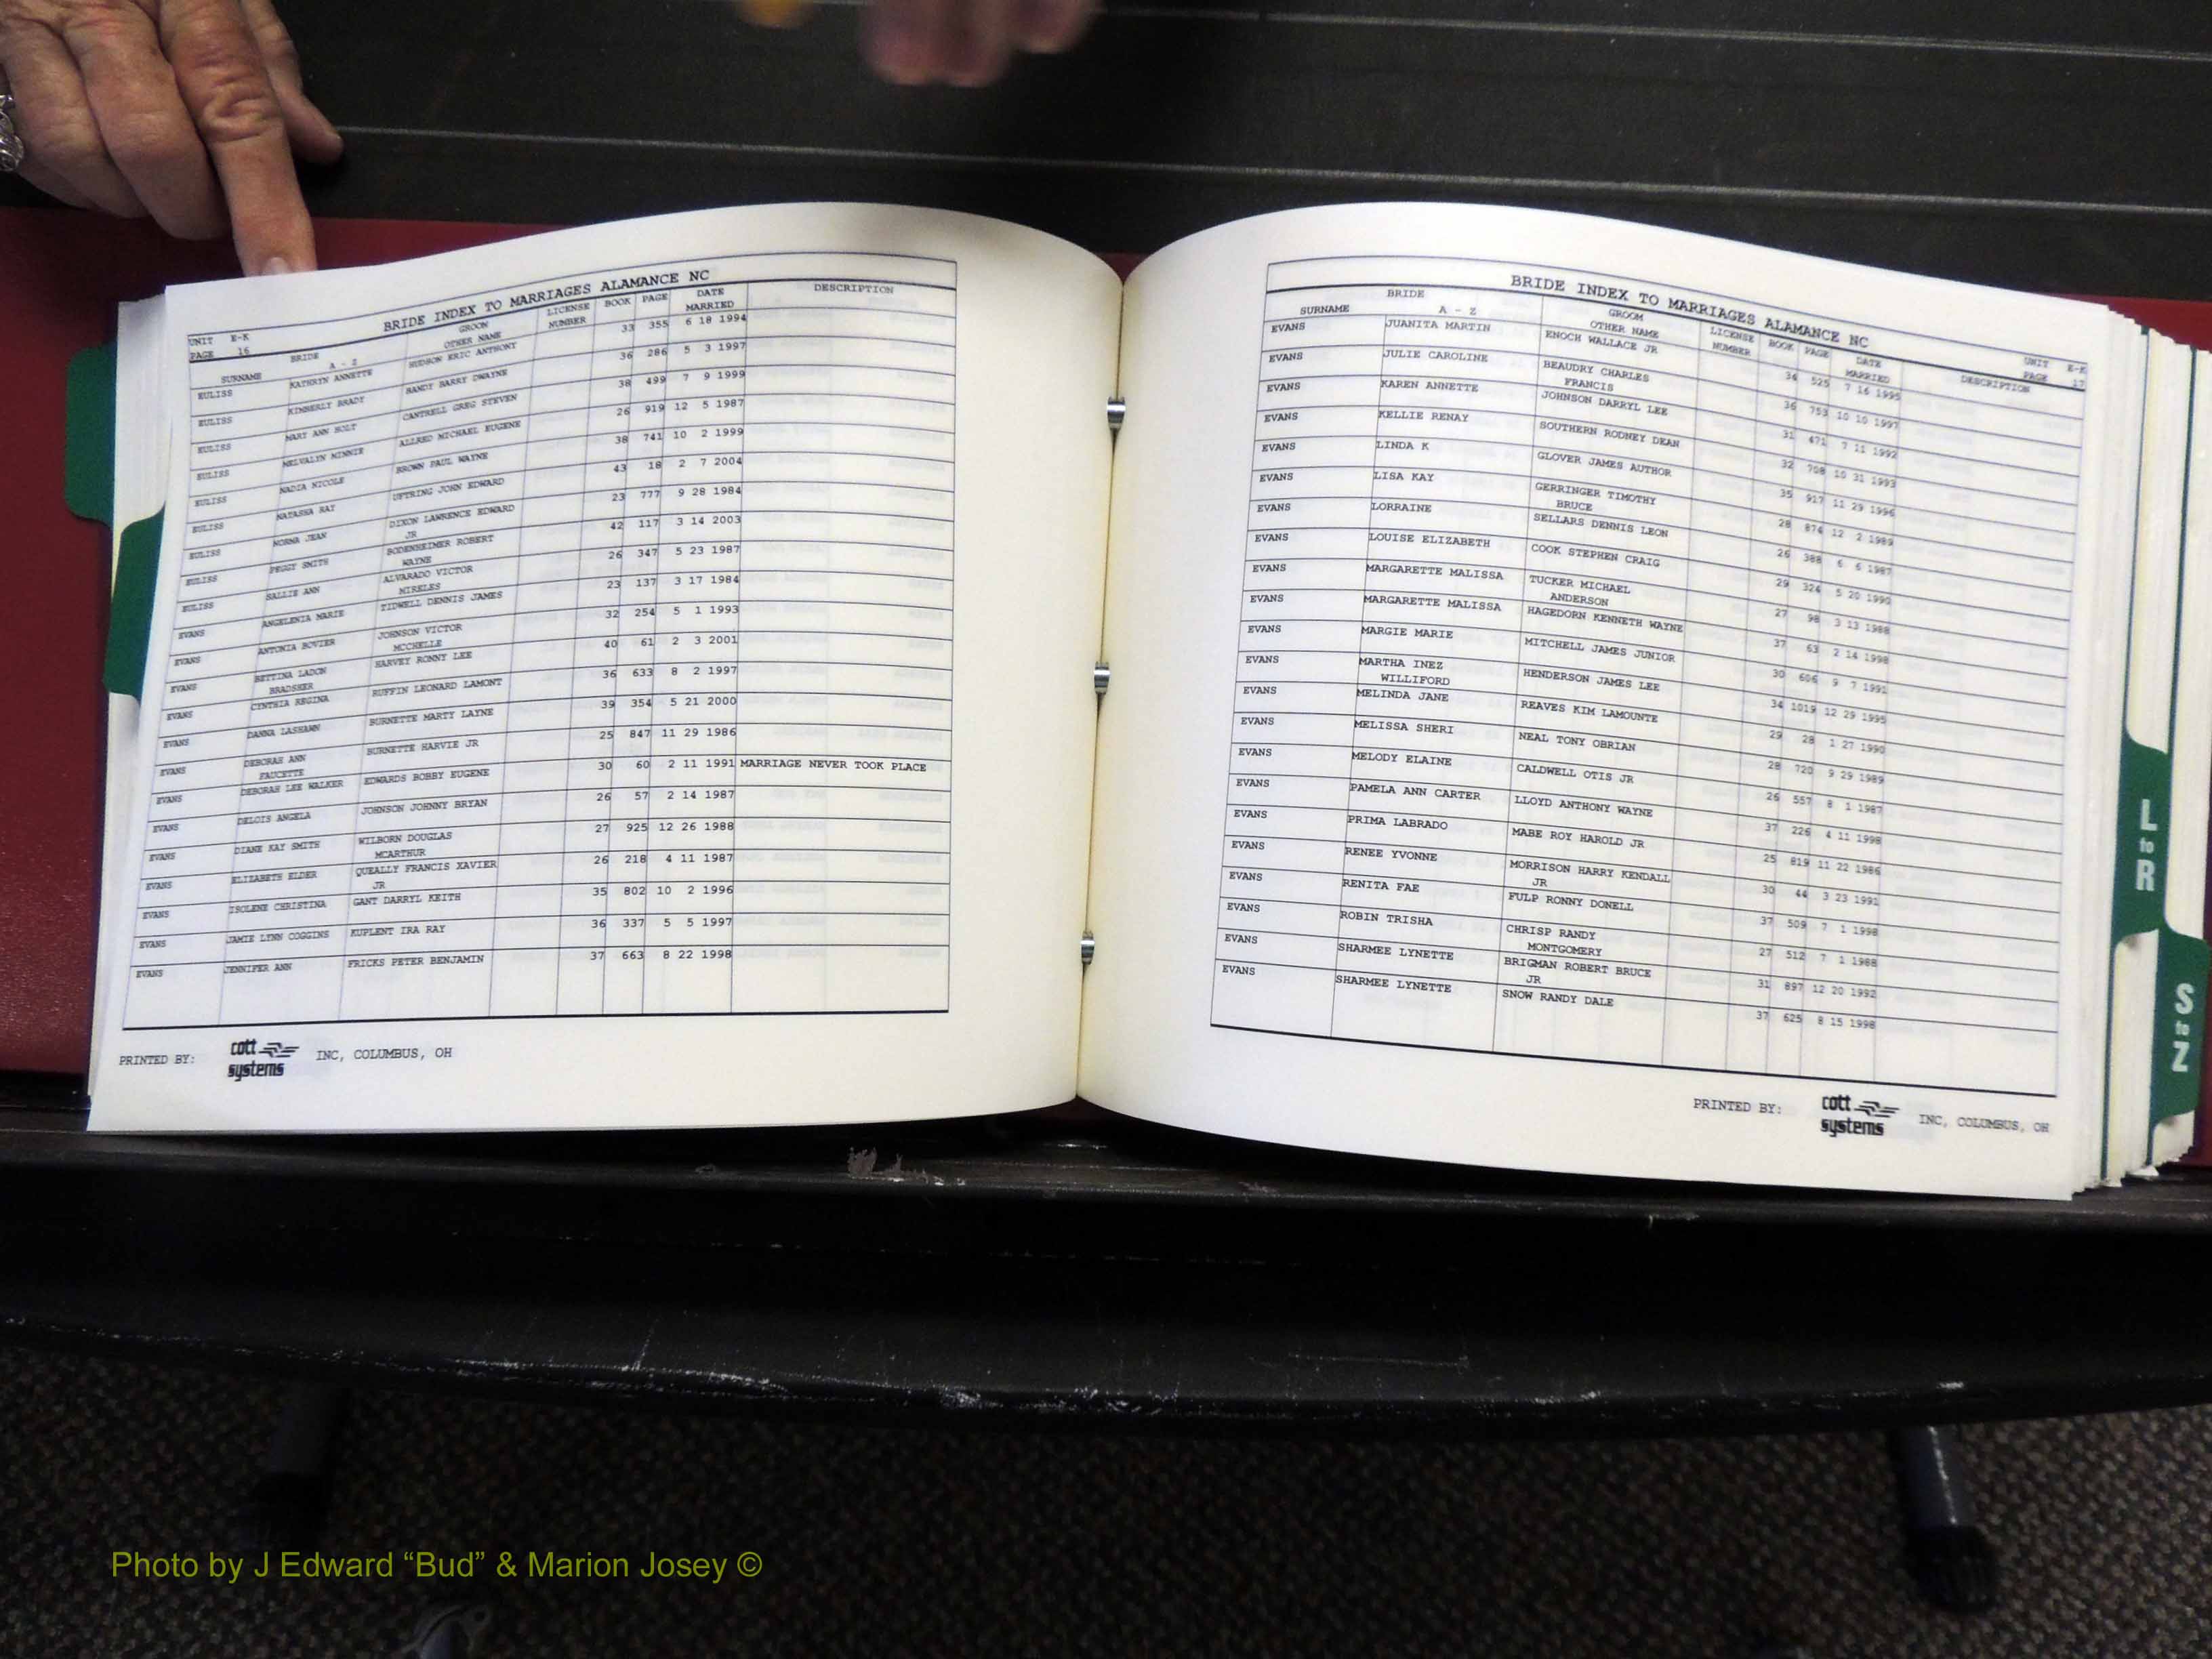 BRIDE INDEX TO MARRIAGES ALAMANCE NC
UNIT E-K
PAGE 16
SURNAME BRIDE A - Z GROOM OTHER NAME LICENSE NUMBER BOOK PAGE DATE MARRIED DESCRIPTION
EULISS KATHRYN ANNETTE HUDSON ERIC ANTHONY 33 355 6 18 1994
EULISS KIMBERLY BRADY RANDY BARRY DWAYNE 36 286 5 3 1997
EULISS MARY ANN HOLT CANTRELL GREG STEVEN 38 499 7 9 1999
EULISS MELVALYN MINNIE ALLRED MICHAEL EUGENE 26 919 12 5 1987
EULISS NADIA NICOLE BROWN PAUL WAYNE 38 741 10 2 1999
EULISS NATASHA RAY UFTRING JOHN EDWARD 43 18 2 7 2004
EULISS NORMA JEAN DIXON LAWRENCE EDWARD 23 777 9 28 1984
JR
EULISS PEGGY SMITH BODENHEIMER ROBERT 42 117 3 14 2003
WAYNE
EULISS SALLIE ANN ALVARADO VICTOR 26 347 5 23 1987
MIRELES
EVANS ANGELENIA MARIE TIDWELL DENNIS JAMES 23 137 3 17 1984
EVANS ANTONIA BOVIER JOHNSON VICTOR 32 254 5 1 1993
MCCHELLE
EVANS BETTINA LADON HARVEY RONNY LEE 40 61 2 3 2001
BRADSHER
EVANS CYNTHIA REGINA RUFFIN LEONARD LAMONT 36 633 8 2 1997
EVANS DANNA LASHAWN BURNETTE MARTY LAYNE 39 354 5 21 2000
EVANS DEBORAH ANN BURNETTE HARVIE JR 25 847 11 29 1986
FAUCETTE
EVANS DEBORAH LEE WALKER EDWARDS BOBBY EUGENE 30 60 2 11 1991 MARRIAGE NEVER TOOK PLACE
EVANS DELOIS ANGELA JOHNSON JOHNNY BRYAN 26 57 2 14 1987
EVANS DIANE KAY SMITH WILBORN DOUGLAS 27 925 12 26 1988
MCARTHUR
EVANS ELIZABETH ELDER QUEALLY FRANCIS XAVIER 26 218 4 11 1987
JR
EVANS ISOLENE CHRISTINA GANT DARRYL KEITH 35 802 10 2 1996
EVANS JAMIE LYNN COGGINS KUPLENT IRA RAY 36 337 5 5 1997
EVANS JENNIFER ANN FRICKS PETER BENJAMIN 37 663 8 22 1998
PRINTED BY: cott systems INC, COLUMBUS, OH
BRIDE INDEX TO MARRIAGES ALAMANCE NC
UNIT E-K
PAGE 17
SURNAME BRIDE A - Z GROOM OTHER NAME LICENSE NUMBER BOOK PAGE DATE MARRIED DESCRIPTION
EVANS JUANITA MARTIN ENOCH WALLACE JR 34 525 7 16 1995
EVANS JULIE CAROLINE BEAUDRY CHARLES 36 753 10 10 1997
FRANCIS
EVANS KAREN ANNETTE JOHNSON DARRYL LEE 31 471 7 11 1992
EVANS KELLIE RENAY SOUTHERN RODNEY DEAN 32 708 10 31 1993
EVANS LINDA K GLOVER JAMES AUTHOR 35 917 11 29 1996
EVANS LISA KAY GERRINGER TIMOTHY 28 874 12 2 1989
BRUCE
EVANS LORRAINE SELLARS DENNIS LEON 26 388 6 6 1987
EVANS LOUISE ELIZABETH COOK STEPHEN CRAIG 29 324 5 20 1990
EVANS MARGARETTE MALISSA TUCKER MICHAEL 27 98 3 13 1988
ANDERSON
EVANS MARGARETTE MALISSA HAGEDORN KENNETH WAYNE 37 63 2 14 1998
EVANS MARGIE MARIE MITCHELL JAMES JUNIOR 30 606 9 7 1991
EVANS MARTHA INEZ HENDERSON JAMES LEE 34 1019 12 29 1995
WILLIFORD
EVANS MELINDA JANE REAVES KIM LAMOUNTE 29 28 1 27 1990
EVANS MELISSA SHERI NEAL TONY OBRIAN 28 720 9 29 1989
EVANS MELODY ELAINE CALDWELL OTIS JR 26 557 8 1 1987
EVANS PAMELA ANN CARTER LLOYD ANTHONY WAYNE 37 226 4 11 1998
EVANS PRIMA LABRADO MABE ROY HAROLD JR 25 819 11 22 1986
EVANS RENEE YVONNE MORRISON HARRY KENDALL 30 44 3 23 1991
JR
EVANS RENITA FAE FULP RONNY DONELL 37 509 7 1 1998
EVANS ROBIN TRISHA CHRISP RANDY 27 512 7 1 1988
MONTGOMERY
EVANS SHARMEE LYNETTE BRIGMAN ROBERT BRUCE 31 897 12 20 1992
JR
EVANS SHARMEE LYNETTE SNOW RANDY DALE 37 625 8 15 1998
PRINTED BY: cott systems INC, COLUMBUS, OH
L to R
S to Z
Photo by J Edward “Bud” & Marion Josey ©